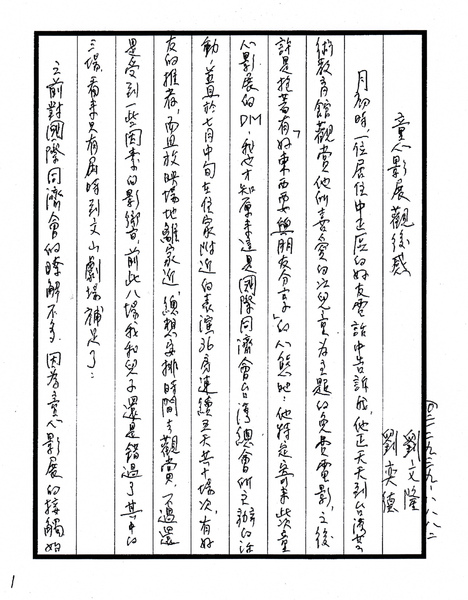 童心影展觀後感
劉文隆
劉奕德
月初時，一位居住中正區的好友電話中告訴我，他正天天到台灣藝
術教育館觀賞他所喜愛的以兒童為主題的免費電影，之後
許是抱著有「好東西要與朋友分享」的心態吧！他特定寄來此次童
心影展的DM，我也才知原來這是國際同濟會台灣總會所主辦的活
動，並且於七月中旬在住家附近的表演36房連續五天共十場次，有好
友的推荐，而且放映場地離家近，總想安排時間去觀賞，不過還
是受到一些因素的影響，前此八場我和兒子還是錯過了其中的
三場，看來只有屆時到文山劇場補足了：
之前對國際同濟會的瞭解不多，因為童心影展的接觸始
1